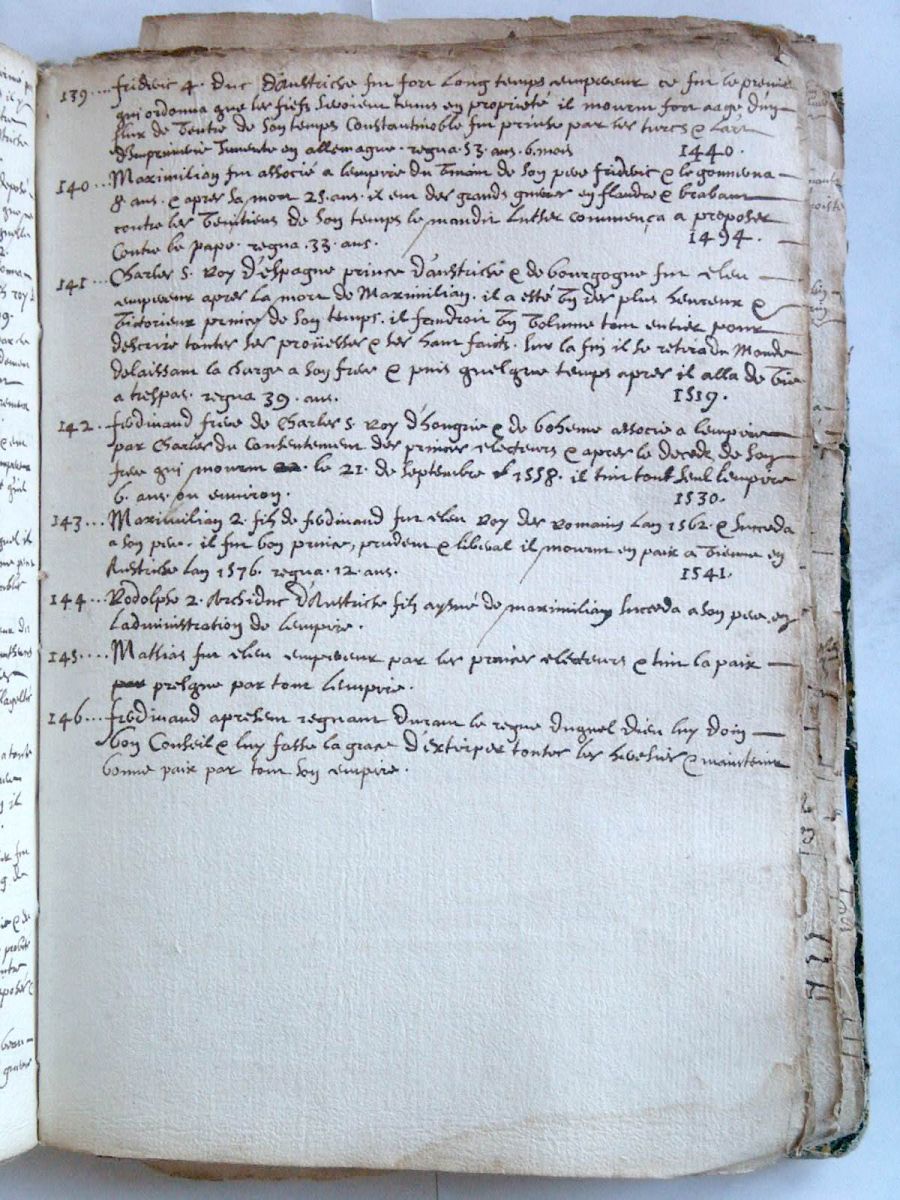 139... frideric 4. duc d'austriche fut fort long temps empereur ce fut le premier
qui ordonna que les fiefs seroient tenus en propriete il mourut fort aagé d'un
flux de ventre de son temps Constantinoble fut prinse par les turcs & l'art
d'Imprimerie Inventé en allemagne. regna 53. ans. 6. mois 1440.
140... Maximilian fut associé a lempire du vivant de son pere frideric & le gouverna
8. ans. & apres sa mort 25. ans. il eut des grands guerres en flandre & brabant
contre les venitiens de son temps le maudit luther commença a proposer
contre le pape. regna. 33. ans. 1494.
141... Charles 5. Roy d'espagne prince d'austriche & de bourgogne fut eleu
empereur apres la mort de Maximilian. il a esté un des plus heureux &
victorieux princes de son temps. il faudroit un volume tout entier pour
descrire toutes ses proüesses & ses haut faicts. sur la fin il se retira du monde
delaissant la charge a son frere & puis quelque temps apres il alla de vie
a trespas. regna 39. ans. 1519.
142.. ferdinand frere de Charles 5. Roy d'hongrie & de boheme associé a lempire
par Charles du consentement des princes electeurs & apres le deceds de son
frere qui mourut le 21. de septembre 1558. il tint tout seul lempire
6. ans ou environ. 1530.
143... Maximilian 2. filz de ferdinand fut eleu Roy des romains lan 1562. & succeda
a son pere. il fut bon prince, prudent & liberal il mourut en paix a vienne en
Austriche lan 1576. regna. 12. ans. 1541.
144... Rodolphe 2. Archiduc d'Austriche filz aysné de maximilian succeda a son pere en
ladministration de lempire.
145.... Mathias fut eleu empereur par les princes electeurs & tint la paix
presque par tout lempire.
146... ferdinand apresent regnant durant le regne duquel dieu luy doin
bon Conseil & luy fasse la grace d'extirper toutes les heresies & maintenir
bonne paix par tout son empire.